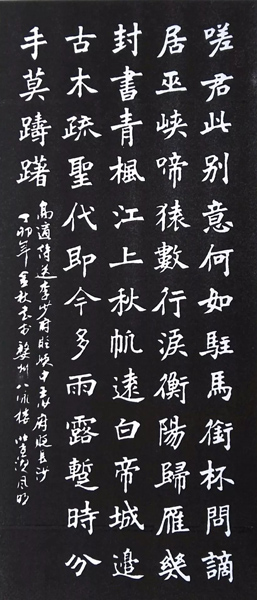 嗟君此别意何如駐馬銜杯問謫
居巫峽啼猿數行淚衡陽歸雁幾
封書青楓江上秋帆遠白帝城邉
古木疏聖代即今多雨露暫時分
手莫躊躇
高適詩送李少府貶峽中王少府貶長沙
丁卯年金秋書於婺州八詠樓